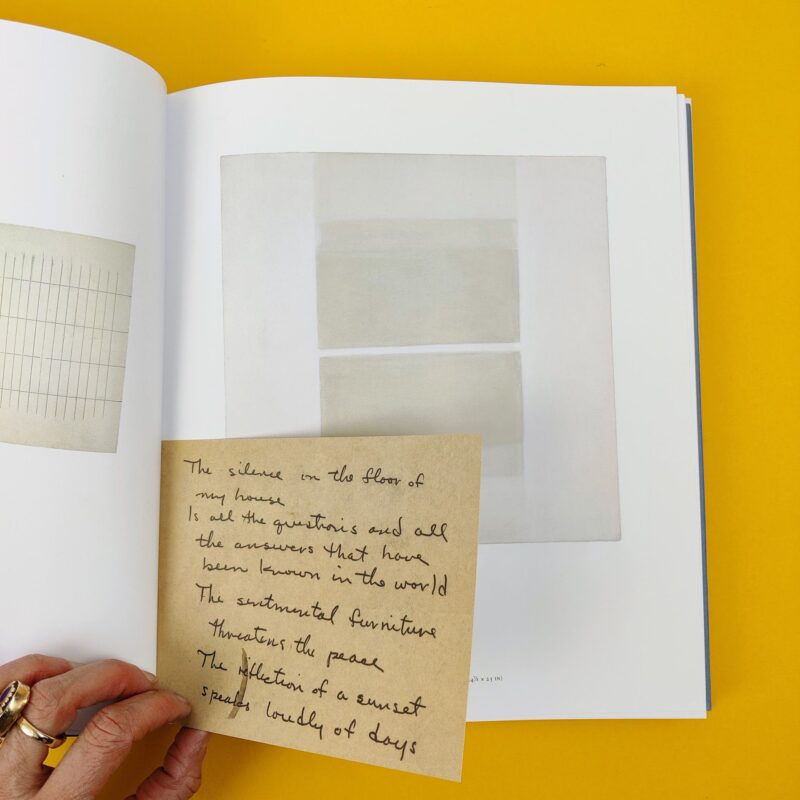 The silence on the floor of
my house
Is all the questions and all
the answers that have
been known in the world
The sentimental furniture
threatens the peace
The reflection of a sunset
speaks loudly of days